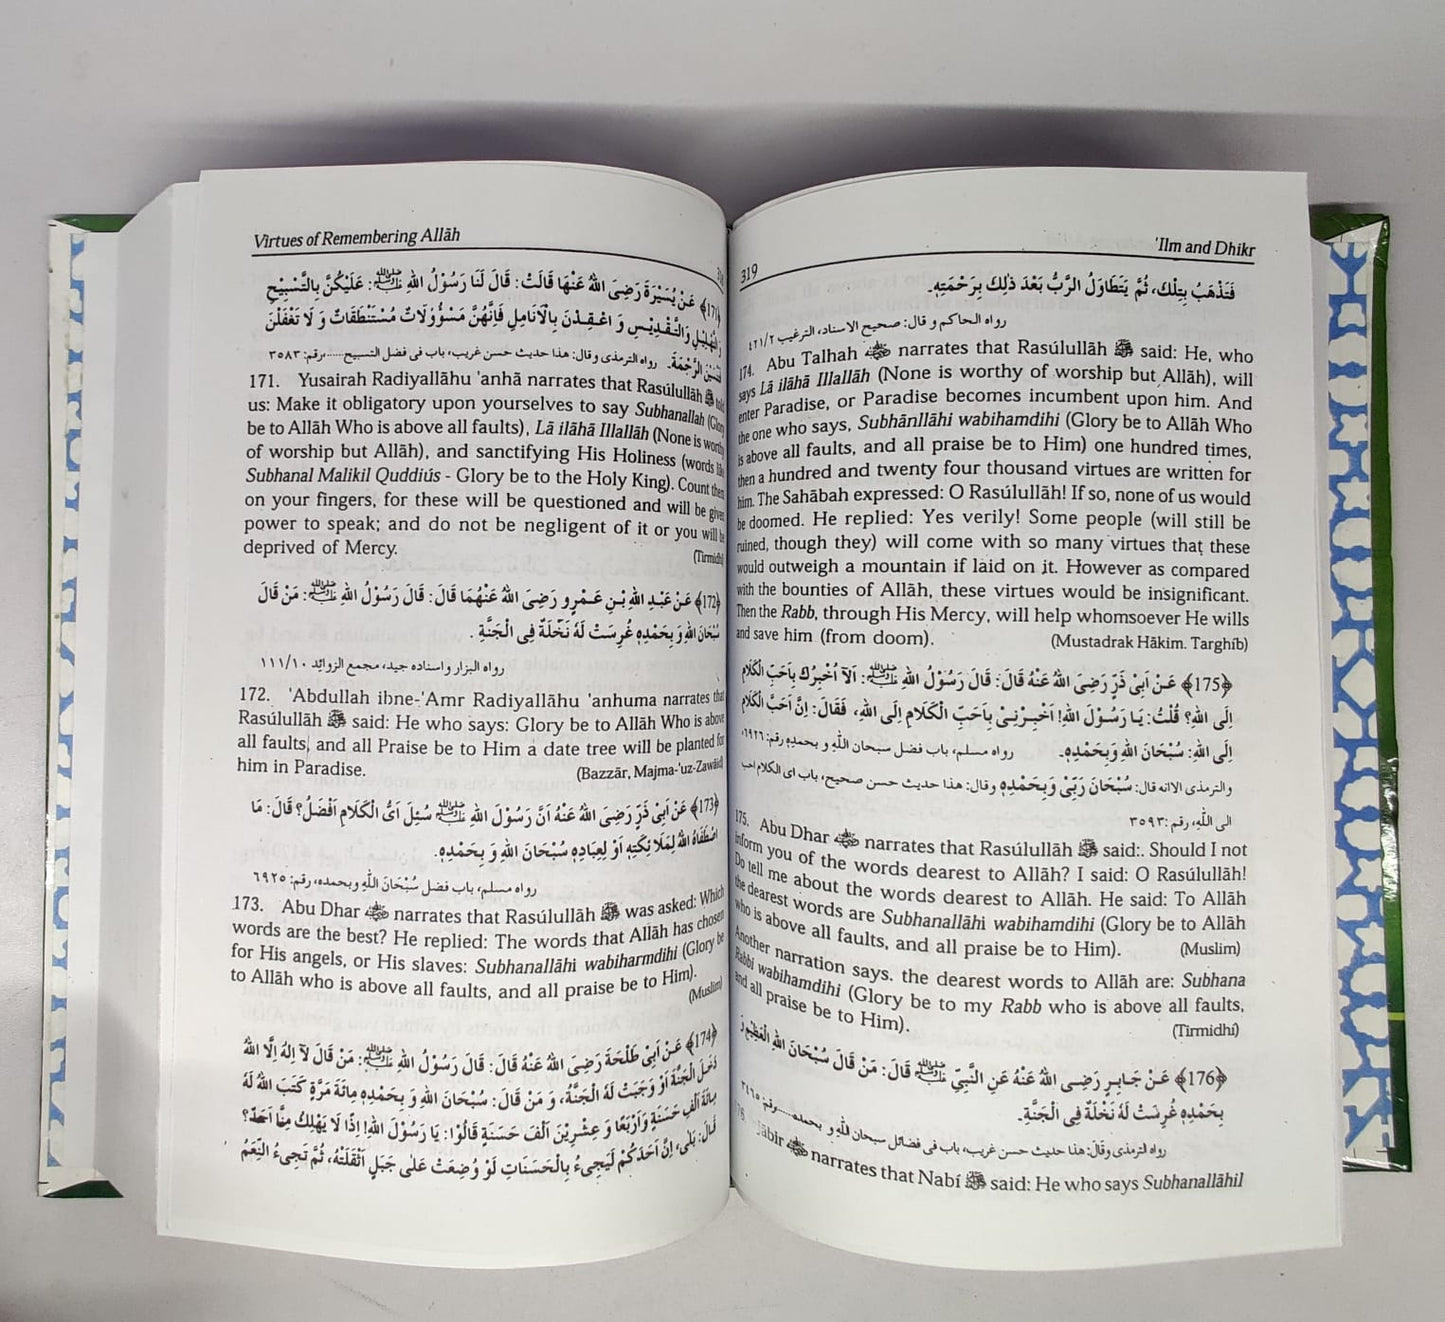 Virtues of Remembering Allāh
﴿171﴾ عَنْ يُسَيْرَةَ رَضِيَ اللهُ عَنْهَا قَالَتْ: قَالَ لَنَا رَسُوْلُ اللهِ ﷺ: عَلَيْكُنَّ بِالتَّسْبِيْحِ
وَالتَّهْلِيْلِ وَالتَّقْدِيْسِ وَ اعْقِدْنَ بِالْاَنَامِلِ فَاِنَّهُنَّ مَسْؤُوْلَاتٌ مُسْتَنْطَقَاتٌ وَ لَا تَغْفُلْنَ
فَتَنْسَيْنَ الرَّحْمَةَ. رواه الترمذى وقال: هذا حديث حسن غريب، باب فى فضل التسبيح......رقم: ٣٥٨٣
171. Yusairah Radiyallāhu 'anhā narrates that Rasúlullāh ﷺ told
us: Make it obligatory upon yourselves to say Subhanallah (Glory
be to Allāh Who is above all faults), Lā ilāhā Illallāh (None is worthy
of worship but Allāh), and sanctifying His Holiness (words like
Subhanal Malikil Quddiús - Glory be to the Holy King). Count them
on your fingers, for these will be questioned and will be given
power to speak; and do not be negligent of it or you will be
deprived of Mercy. (Tirmidhi)
﴿172﴾ عَنْ عَبْدِ اللهِ بْنِ عَمْرٍو رَضِيَ اللهُ عَنْهُمَا قَالَ: قَالَ رَسُوْلُ اللهِ ﷺ: مَنْ قَالَ
سُبْحَانَ اللهِ وَ بِحَمْدِهٖ غُرِسَتْ لَهُ نَخْلَةٌ فِى الْجَنَّةِ .
رواه البزار واسناده جيد، مجمع الزوائد ١١١/١٠
172. 'Abdullah ibne-'Amr Radiyallāhu 'anhuma narrates that
Rasúlullāh ﷺ said: He who says: Glory be to Allāh Who is above
all faults, and all Praise be to Him a date tree will be planted for
him in Paradise. (Bazzār, Majma-'uz-Zawāid)
﴿173﴾ عَنْ اَبِيْ ذَرٍّ رَضِيَ اللهُ عَنْهُ اَنَّ رَسُوْلَ اللهِ ﷺ سُئِلَ اَيُّ الْكَلَامِ اَفْضَلُ؟ قَالَ: مَا
اصْطَفَاهُ اللهُ لِمَلَائِكَتِهٖ اَوْ لِعِبَادِهٖ سُبْحَانَ اللهِ وَ بِحَمْدِهٖ.
رواه مسلم، باب فضل سُبْحَانَ اللّٰهِ وبحمده، رقم: ٦٩٢٥
173. Abu Dhar narrates that Rasúlullāh ﷺ was asked: Which
words are the best? He replied: The words that Allāh has chosen
for His angels, or His slaves: Subhanallāhi wabiharmdihi (Glory be
to Allāh who is above all faults, and all praise be to Him).
(Muslim)
﴿174﴾ عَنْ اَبِيْ طَلْحَةَ رَضِيَ اللهُ عَنْهُ قَالَ: قَالَ رَسُوْلُ اللهِ ﷺ: مَنْ قَالَ لَآ اِلٰهَ اِلَّا اللهُ
دَخَلَ الْجَنَّةَ اَوْ وَجَبَتْ لَهُ الْجَنَّةُ، وَ مَنْ قَالَ: سُبْحَانَ اللهِ وَ بِحَمْدِهٖ مِائَةَ مَرَّةٍ كَتَبَ اللهُ لَهُ
مِائَةَ اَلْفِ حَسَنَةٍ وَاَرْبَعًا وَ عِشْرِيْنَ اَلْفَ حَسَنَةٍ قَالُوْا: يَا رَسُوْلَ اللهِ! اِذًا لَا يَهْلِكُ مِنَّا اَحَدٌ؟
قَالَ: بَلٰى، اِنَّ اَحَدَكُمْ لَيَجِيْءُ بِالْحَسَنَاتِ لَوْ وُضِعَتْ عَلٰى جَبَلٍ اَثْقَلَتْهُ، ثُمَّ تَجِيْءُ النِّعَمُ
319
'Ilm and Dhikr
فَتَذْهَبُ بِتِلْكَ، ثُمَّ يَتَطَاوَلُ الرَّبُّ بَعْدَ ذٰلِكَ بِرَحْمَتِهٖ.
رواه الحاكم و قال: صحيح الاسناد، الترغيب ٤٢١/٢
174. Abu Talhah narrates that Rasúlullāh ﷺ said: He, who
says Lā ilāhā Illallāh (None is worthy of worship but Allāh), will
enter Paradise, or Paradise becomes incumbent upon him. And
the one who says, Subhānllāhi wabihamdihi (Glory be to Allāh Who
is above all faults, and all praise be to Him) one hundred times,
then a hundred and twenty four thousand virtues are written for
him. The Sahābah expressed: O Rasúlullāh! If so, none of us would
be doomed. He replied: Yes verily! Some people (will still be
ruined, though they) will come with so many virtues that these
would outweigh a mountain if laid on it. However as compared
with the bounties of Allāh, these virtues would be insignificant.
Then the Rabb, through His Mercy, will help whomsoever He wills
and save him (from doom). (Mustadrak Hākim. Targhíb)
﴿175﴾ عَنْ اَبِيْ ذَرٍّ رَضِيَ اللهُ عَنْهُ قَالَ: قَالَ رَسُوْلُ اللهِ ﷺ: اَلَآ اُخْبِرُكَ بِاَحَبِّ الْكَلَامِ
اِلَى اللهِ؟ قُلْتُ: يَا رَسُوْلَ اللهِ! اَخْبِرْنِيْ بِاَحَبِّ الْكَلَامِ اِلَى اللهِ، فَقَالَ: اِنَّ اَحَبَّ الْكَلَامِ
اِلَى اللهِ: سُبْحَانَ اللهِ وَبِحَمْدِهٖ. رواه مسلم، باب فضل سبحان اللّٰه و بحمده رقم: ٦٩٢٦،
والترمذى الاانه قال: سُبْحَانَ رَبِّيْ وَبِحَمْدِهٖ وقال: هذا حديث حسن صحيح، باب اى الكلام احب
الى اللّٰه، رقم: ٣٥٩٣
175. Abu Dhar narrates that Rasúlullāh ﷺ said:. Should I not
inform you of the words dearest to Allāh? I said: O Rasúlullāh!
Do tell me about the words dearest to Allāh. He said: To Allāh
the dearest words are Subhanallāhi wabihamdihi (Glory be to Allāh
who is above all faults, and all praise be to Him). (Muslim)
Another narration says. the dearest words to Allāh are: Subhana
Rabbi wabihamdihi (Glory be to my Rabb who is above all faults,
and all praise be to Him). (Tirmidhí)
﴿176﴾ عَنْ جَابِرٍ رَضِيَ اللهُ عَنْهُ عَنِ النَّبِيِّ ﷺ قَالَ: مَنْ قَالَ سُبْحَانَ اللهِ الْعَظِيْمِ وَ
بِحَمْدِهٖ غُرِسَتْ لَهُ نَخْلَةٌ فِى الْجَنَّةِ.
رواه الترمذى وقال: هذا حديث حسن غريب، باب فى فضائل سبحان اللّٰه و بحمده......رقم: ٣٤٦٥
176. Jābir narrates that Nabí ﷺ said: He who says Subhanallāhil